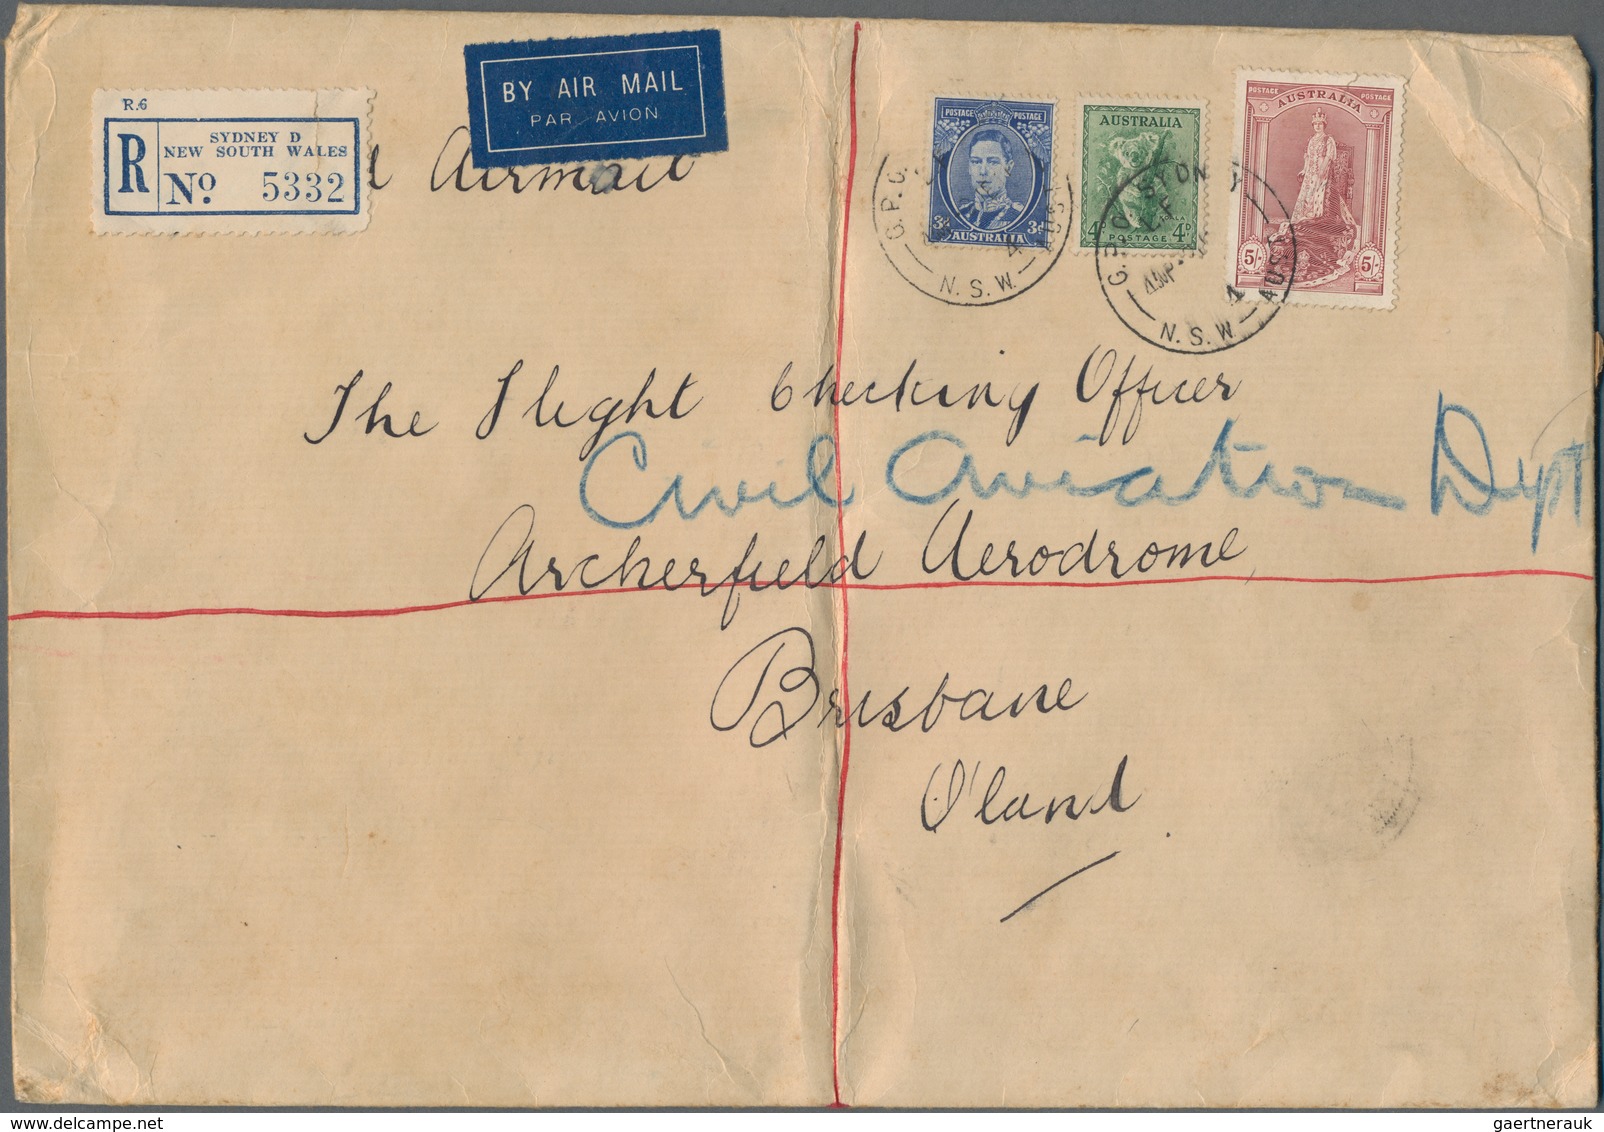 R.6
R
SYDNEY D
NEW SOUTH WALES
No. 5332
BY AIR MAIL
PAR AVION
Airmail
POSTAGE POSTAGE
3d 3d
AUSTRALIA
AUSTRALIA
KOALA
4D POSTAGE 4D
POSTAGE AUSTRALIA POSTAGE
5/- 5/-
G.P.O.
AUST
N.S.W.
G.P.O. SYDNEY
AUST
N.S.W.
The Flight Checking Officer
Civil Aviation Dept
Archerfield Aerodrome,
Brisbane
Q'land
gaertnerauk